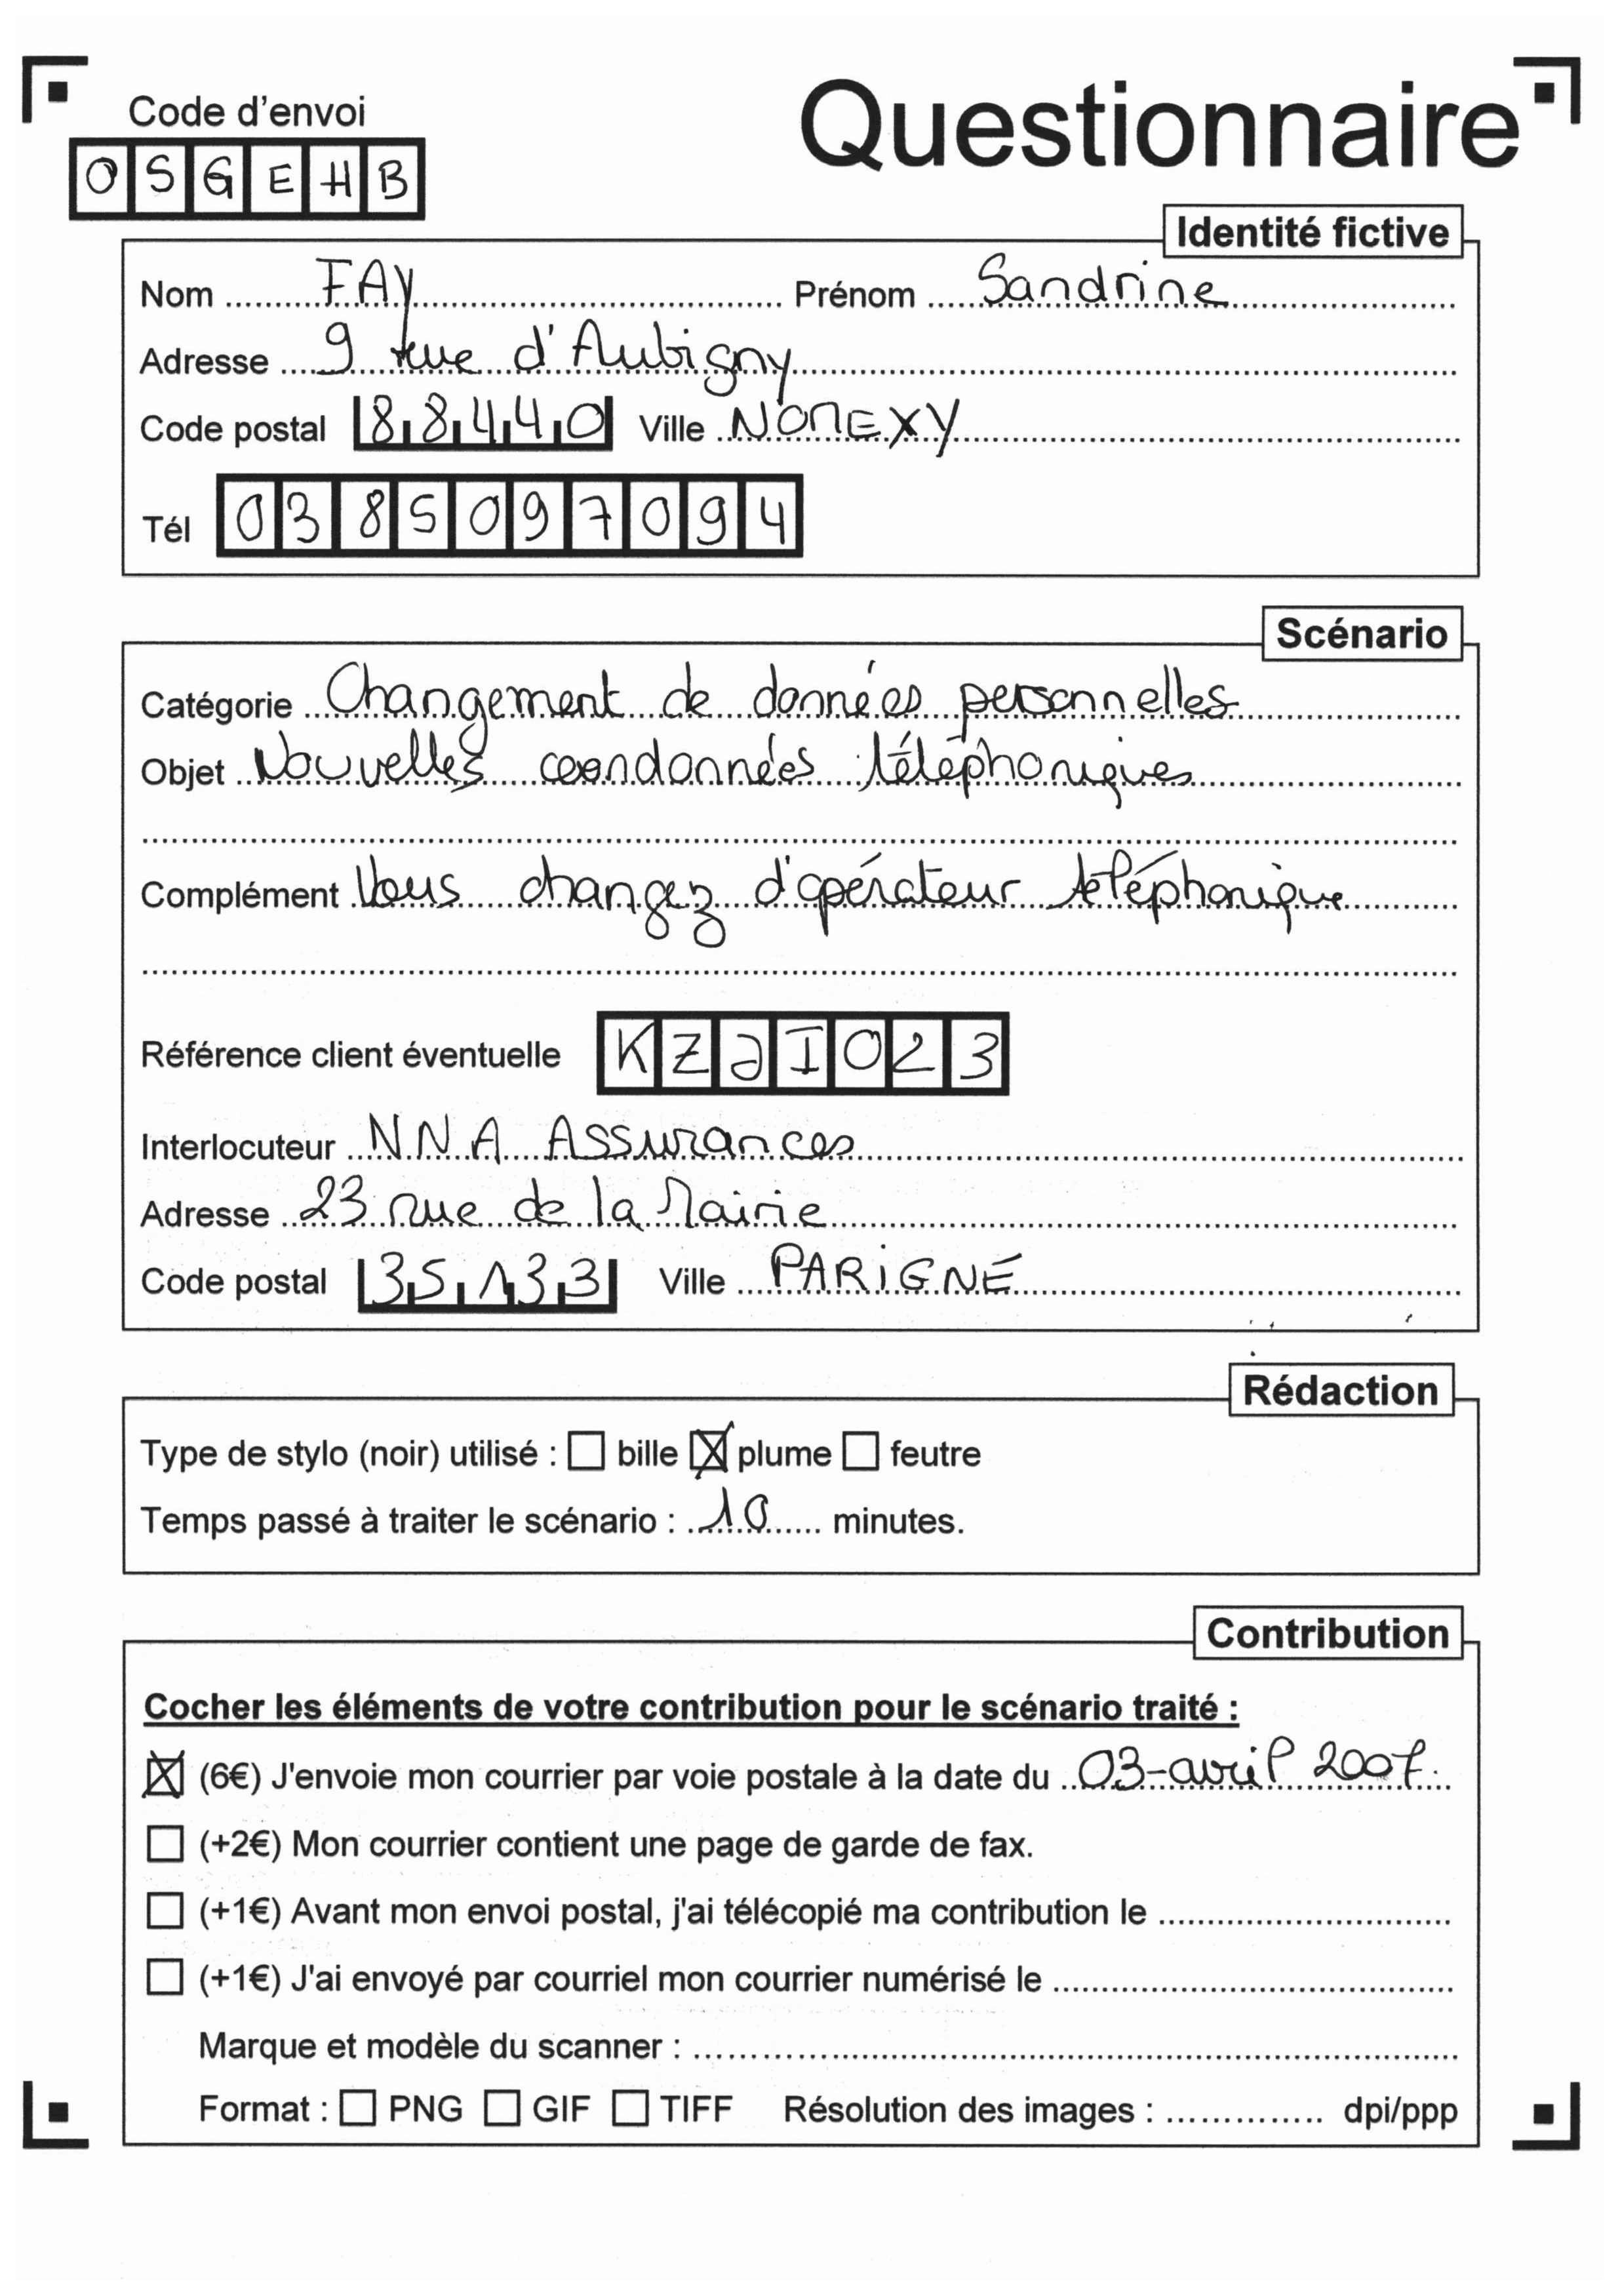 Code d'envoi
Questionnaire
OSGEHB
Identité fictive
Nom FAY Prénom Sandrine
Adresse 9 rue d'Aubigny
Code postal 88440 Ville NOMEXY
Tél 0385097094
Scénario
Catégorie Changement de données personnelles
Objet Nouvelles coordonnées téléphoniques
Complément Vous changez d'opérateur téléphonique
Référence client éventuelle KZJIO23
Interlocuteur NNA Assurances
Adresse 23 rue de la Mairie
Code postal 35133 Ville PARIGNÉ
Rédaction
Type de stylo (noir) utilisé : ☐ bille ☒ plume ☐ feutre
Temps passé à traiter le scénario : 10 minutes.
Contribution
Cocher les éléments de votre contribution pour le scénario traité :
☒ (6€) J'envoie mon courrier par voie postale à la date du 03-avril 2007.
☐ (+2€) Mon courrier contient une page de garde de fax.
☐ (+1€) Avant mon envoi postal, j'ai télécopié ma contribution le
☐ (+1€) J'ai envoyé par courriel mon courrier numérisé le
Marque et modèle du scanner :
Format : ☐ PNG ☐ GIF ☐ TIFF Résolution des images : dpi/ppp